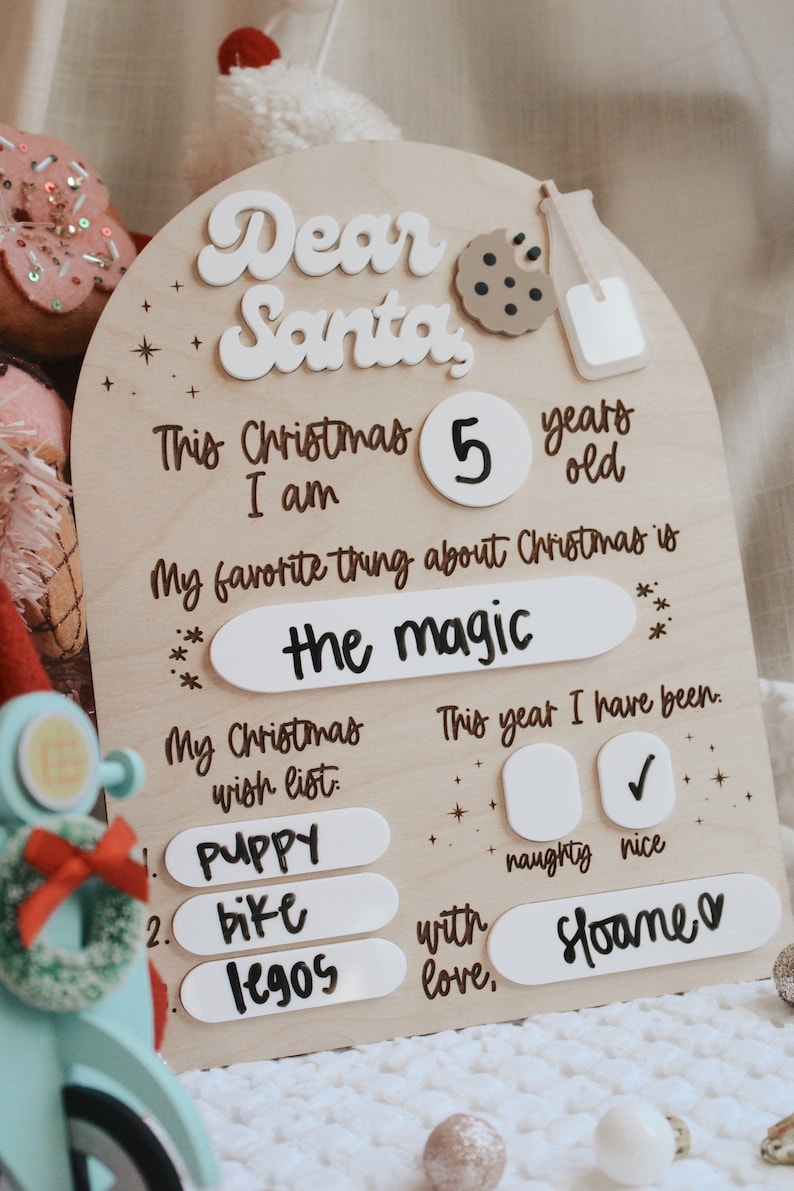 Dear
Santa,
This Christmas
I am
5
years
old
My favorite thing about Christmas is
the magic
My Christmas
wish list:
1. puppy
2. bike
legos
This year I have been:
✓
naughty nice
with
love,
sloane♡